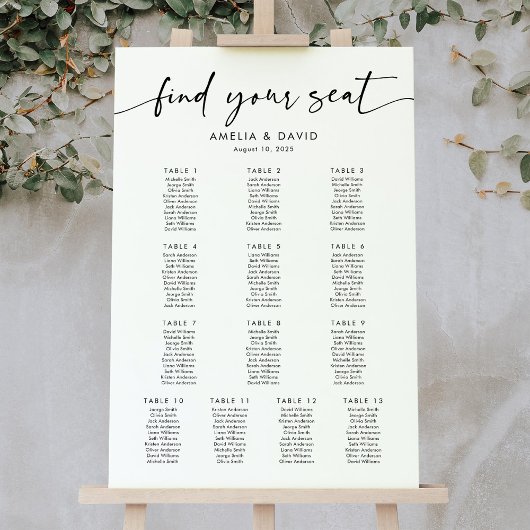 find your seat
AMELIA & DAVID
August 10, 2025
TABLE 1
Michelle Smith
Jeorge Smith
Olivia Smith
Kristen Anderson
Oliver Anderson
Jack Anderson
Sarah Anderson
Liana Williams
Seth Williams
David Williams
TABLE 2
Jack Anderson
Sarah Anderson
Liana Williams
Seth Williams
David Williams
Michelle Smith
Jeorge Smith
Olivia Smith
Kristen Anderson
Oliver Anderson
TABLE 3
David Williams
Michelle Smith
Jeorge Smith
Olivia Smith
Jack Anderson
Sarah Anderson
Liana Williams
Seth Williams
Kristen Anderson
Oliver Anderson
TABLE 4
Sarah Anderson
Liana Williams
Seth Williams
Kristen Anderson
Oliver Anderson
David Williams
Michelle Smith
Jeorge Smith
Olivia Smith
Jack Anderson
TABLE 5
Liana Williams
Seth Williams
David Williams
Michelle Smith
Jeorge Smith
Olivia Smith
Kristen Anderson
Oliver Anderson
Jack Anderson
Sarah Anderson
TABLE 6
Jack Anderson
Sarah Anderson
Liana Williams
Seth Williams
David Williams
Michelle Smith
Jeorge Smith
Olivia Smith
Kristen Anderson
Oliver Anderson
TABLE 7
David Williams
Michelle Smith
Jeorge Smith
Olivia Smith
Jack Anderson
Sarah Anderson
Liana Williams
Seth Williams
Kristen Anderson
Oliver Anderson
TABLE 8
Michelle Smith
Jeorge Smith
Olivia Smith
Kristen Anderson
Oliver Anderson
Jack Anderson
Sarah Anderson
Liana Williams
Seth Williams
David Williams
TABLE 9
Kristen Anderson
Oliver Anderson
David Williams
Jack Anderson
Sarah Anderson
Liana Williams
Seth Williams
Michelle Smith
Jeorge Smith
Olivia Smith
TABLE 10
Jeorge Smith
Olivia Smith
Jack Anderson
Sarah Anderson
Liana Williams
Seth Williams
Kristen Anderson
Oliver Anderson
David Williams
Michelle Smith
TABLE 11
Kristen Anderson
Oliver Anderson
Jack Anderson
Sarah Anderson
Liana Williams
Seth Williams
David Williams
Michelle Smith
Jeorge Smith
Olivia Smith
TABLE 12
David Williams
Michelle Smith
Jeorge Smith
Olivia Smith
Kristen Anderson
Oliver Anderson
Jack Anderson
Sarah Anderson
Liana Williams
Seth Williams
TABLE 13
Michelle Smith
Jeorge Smith
Olivia Smith
Jack Anderson
Sarah Anderson
Liana Williams
Seth Williams
Kristen Anderson
Oliver Anderson
David Williams